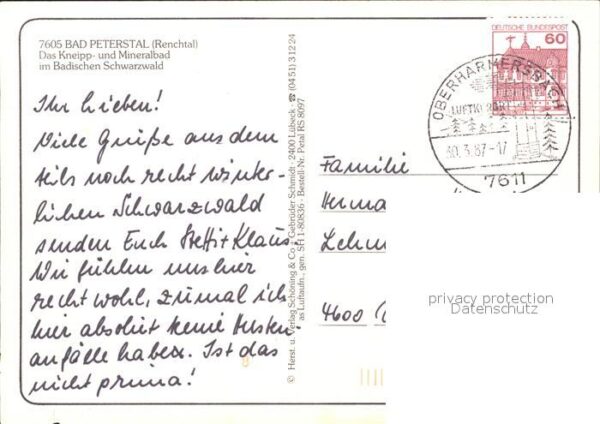 7605 BAD PETERSTAL (Renchtal)
Das Kneipp- und Mineralbad
im Badischen Schwarzwald
Ihr Lieben!
Viele Grüße aus dem
teils noch recht winter-
lichen Schwarzwald
senden Euch Steffi + Klaus.
Wir fühlen uns hier
recht wohl, zumal ich
hier absolut keine Husten-
anfälle habe. Ist das
nicht prima!
© Herst. u. Verlag Schöning & Co + Gebrüder Schmidt · 2400 Lübeck · ☎ (04 51) 3 12 24
as Luftaufn., gen. SH 1-80836 · Bestell-Nr. Petal RS 8097
DEUTSCHE BUNDESPOST
60
OBERHARMERSBACH
LUFTKURORT
30.3.87-17
7611
Familie
Herma
Lehm
4600
privacy protection
Datenschutz